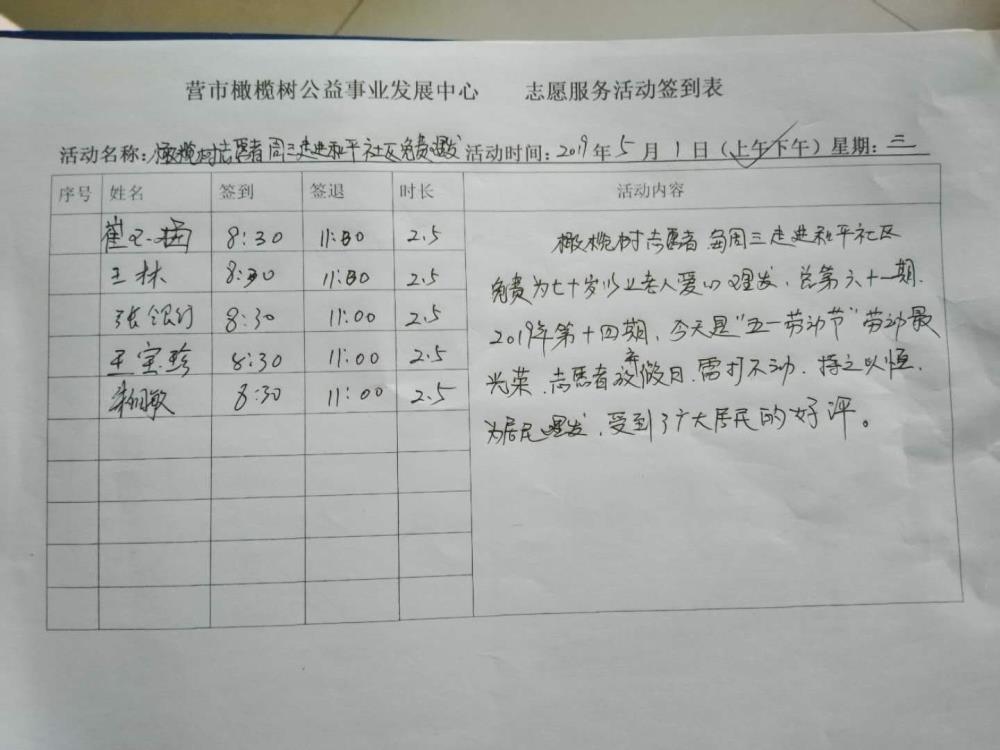 营市橄榄树公益事业发展中心 志愿服务活动签到表
活动名称:橄榄树志愿者周三走进和平社区免费理发 活动时间:2019年5月1日(上午下午)星期:三
序号 姓名 签到 签退 时长 活动内容
崔 8:30 11:00 2.5
王林 8:30 11:00 2.5
张银行 8:30 11:00 2.5
王宝珍 8:30 11:00 2.5
敏 8:30 11:00 2.5
橄榄树志愿者每周三走进和平社区
免费为七十岁以上老人爱心理发,总第六十一期.
2019年第十四期,今天是“五一劳动节”劳动最
光荣.志愿者放弃假日.雷打不动.持之以恒.
为居民理发,受到了广大居民的好评。